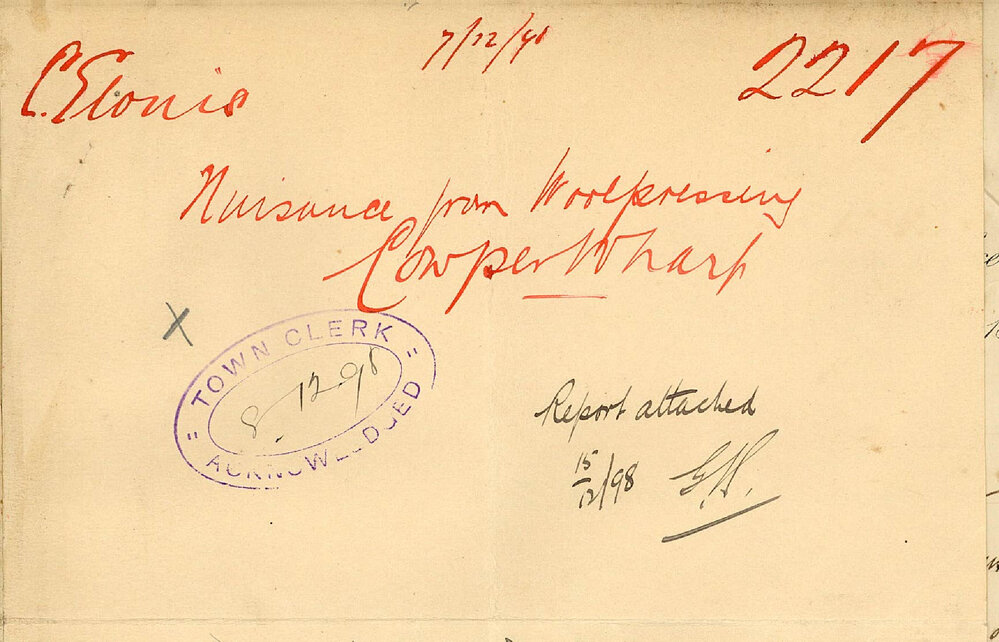 7/12/98
2217
C. Elonis
Nuisance from Woolpressing
Cowper Wharf
X
TOWN CLERK
8.12.98
ACKNOWLEDGED
Report attached
15/12/98 G.H.